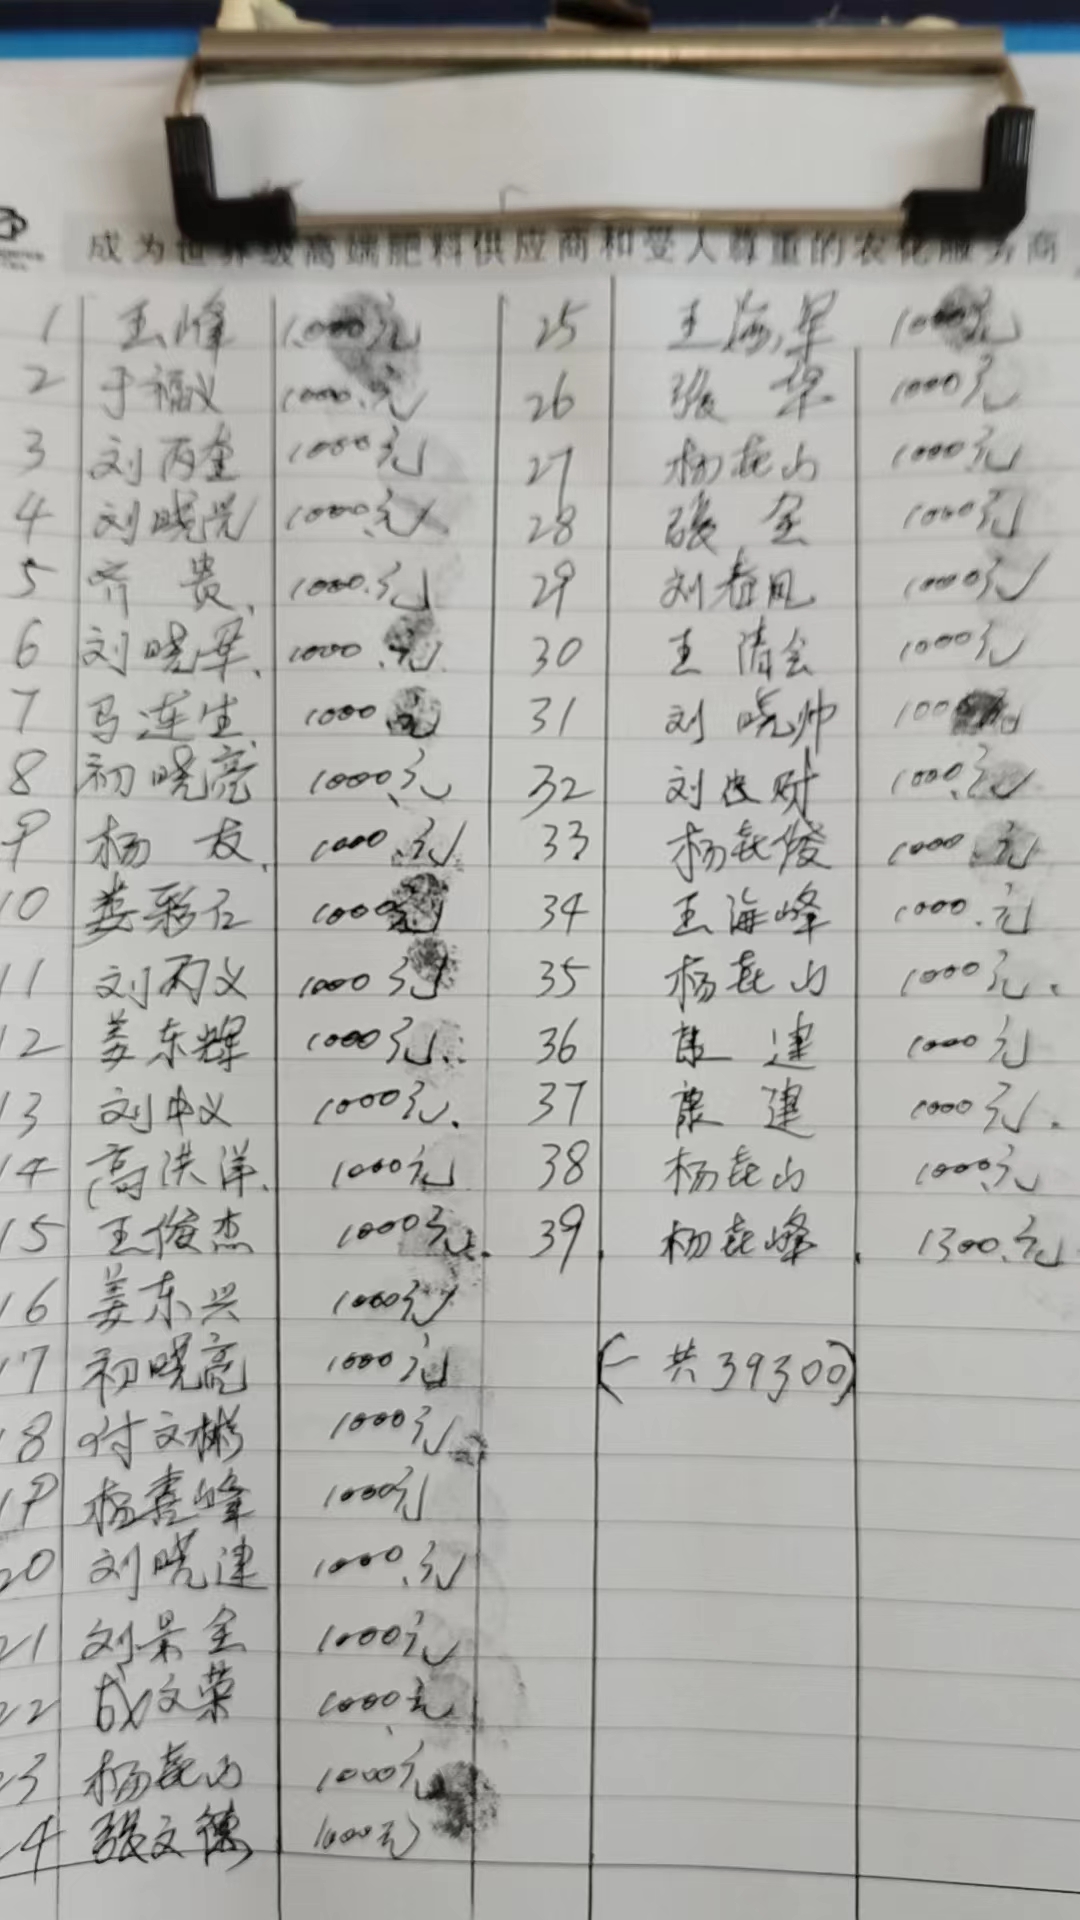 成为世界级高端肥料供应商和受人尊重的农化服务商
1 王峰 1000元
2 于福义 1000.元
3 刘丙奎 1000元
4 刘晓光 1000.元
5 齐贵. 1000.元
6 刘晓军. 1000.元
7 马连生 1000元
8 初晓亮 1000.元
9 杨友. 1000.元
10 娄彩仁 1000元
11 刘丙义 1000元
12 姜东辉 1000元.
13 刘中义 1000元.
14 高洪洋. 1000元
15 王俊杰 1000元.
16 姜东兴 1000元
17 初晓亮 1000元
18 付文彬 1000元
19 杨喜峰 1000元
20 刘晓建 1000.元
21 刘景全 1000元
22 成文荣 1000.元
23 杨喜山 1000元
24 张文德 1000元
25 王海军 1000元
26 张华 1000元
27 杨喜山 1000元
28 张全 1000元
29 刘春凤 1000元
30 王清会 1000元
31 刘晓帅 1000元
32 刘 财 1000.元
33 杨喜俊 1000.元
34 王海峰 1000.元
35 杨喜山 1000元.
36 康建 1000元
37 康建 1000元.
38 杨喜山 1000元
39. 杨喜峰. 1300.元
(一共39300)